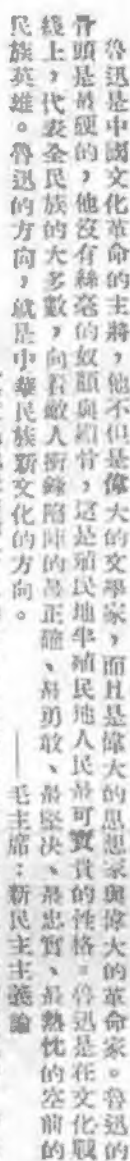 魯迅是中國文化革命的主將，他不但是偉大的文學家，而且是偉大的思想家與偉大的革命家。魯迅的
骨頭是最硬的，他沒有絲毫的奴顏與媚骨，這是殖民地半殖民地人民最可寶貴的性格。魯迅是在文化戰
綫上，代表全民族的大多數，向着敵人衝鋒陷陣的最正確、最勇敢、最堅決、最忠實、最熱忱的空前的
民族英雄。魯迅的方向，就是中華民族新文化的方向。
——毛主席：新民主主義論